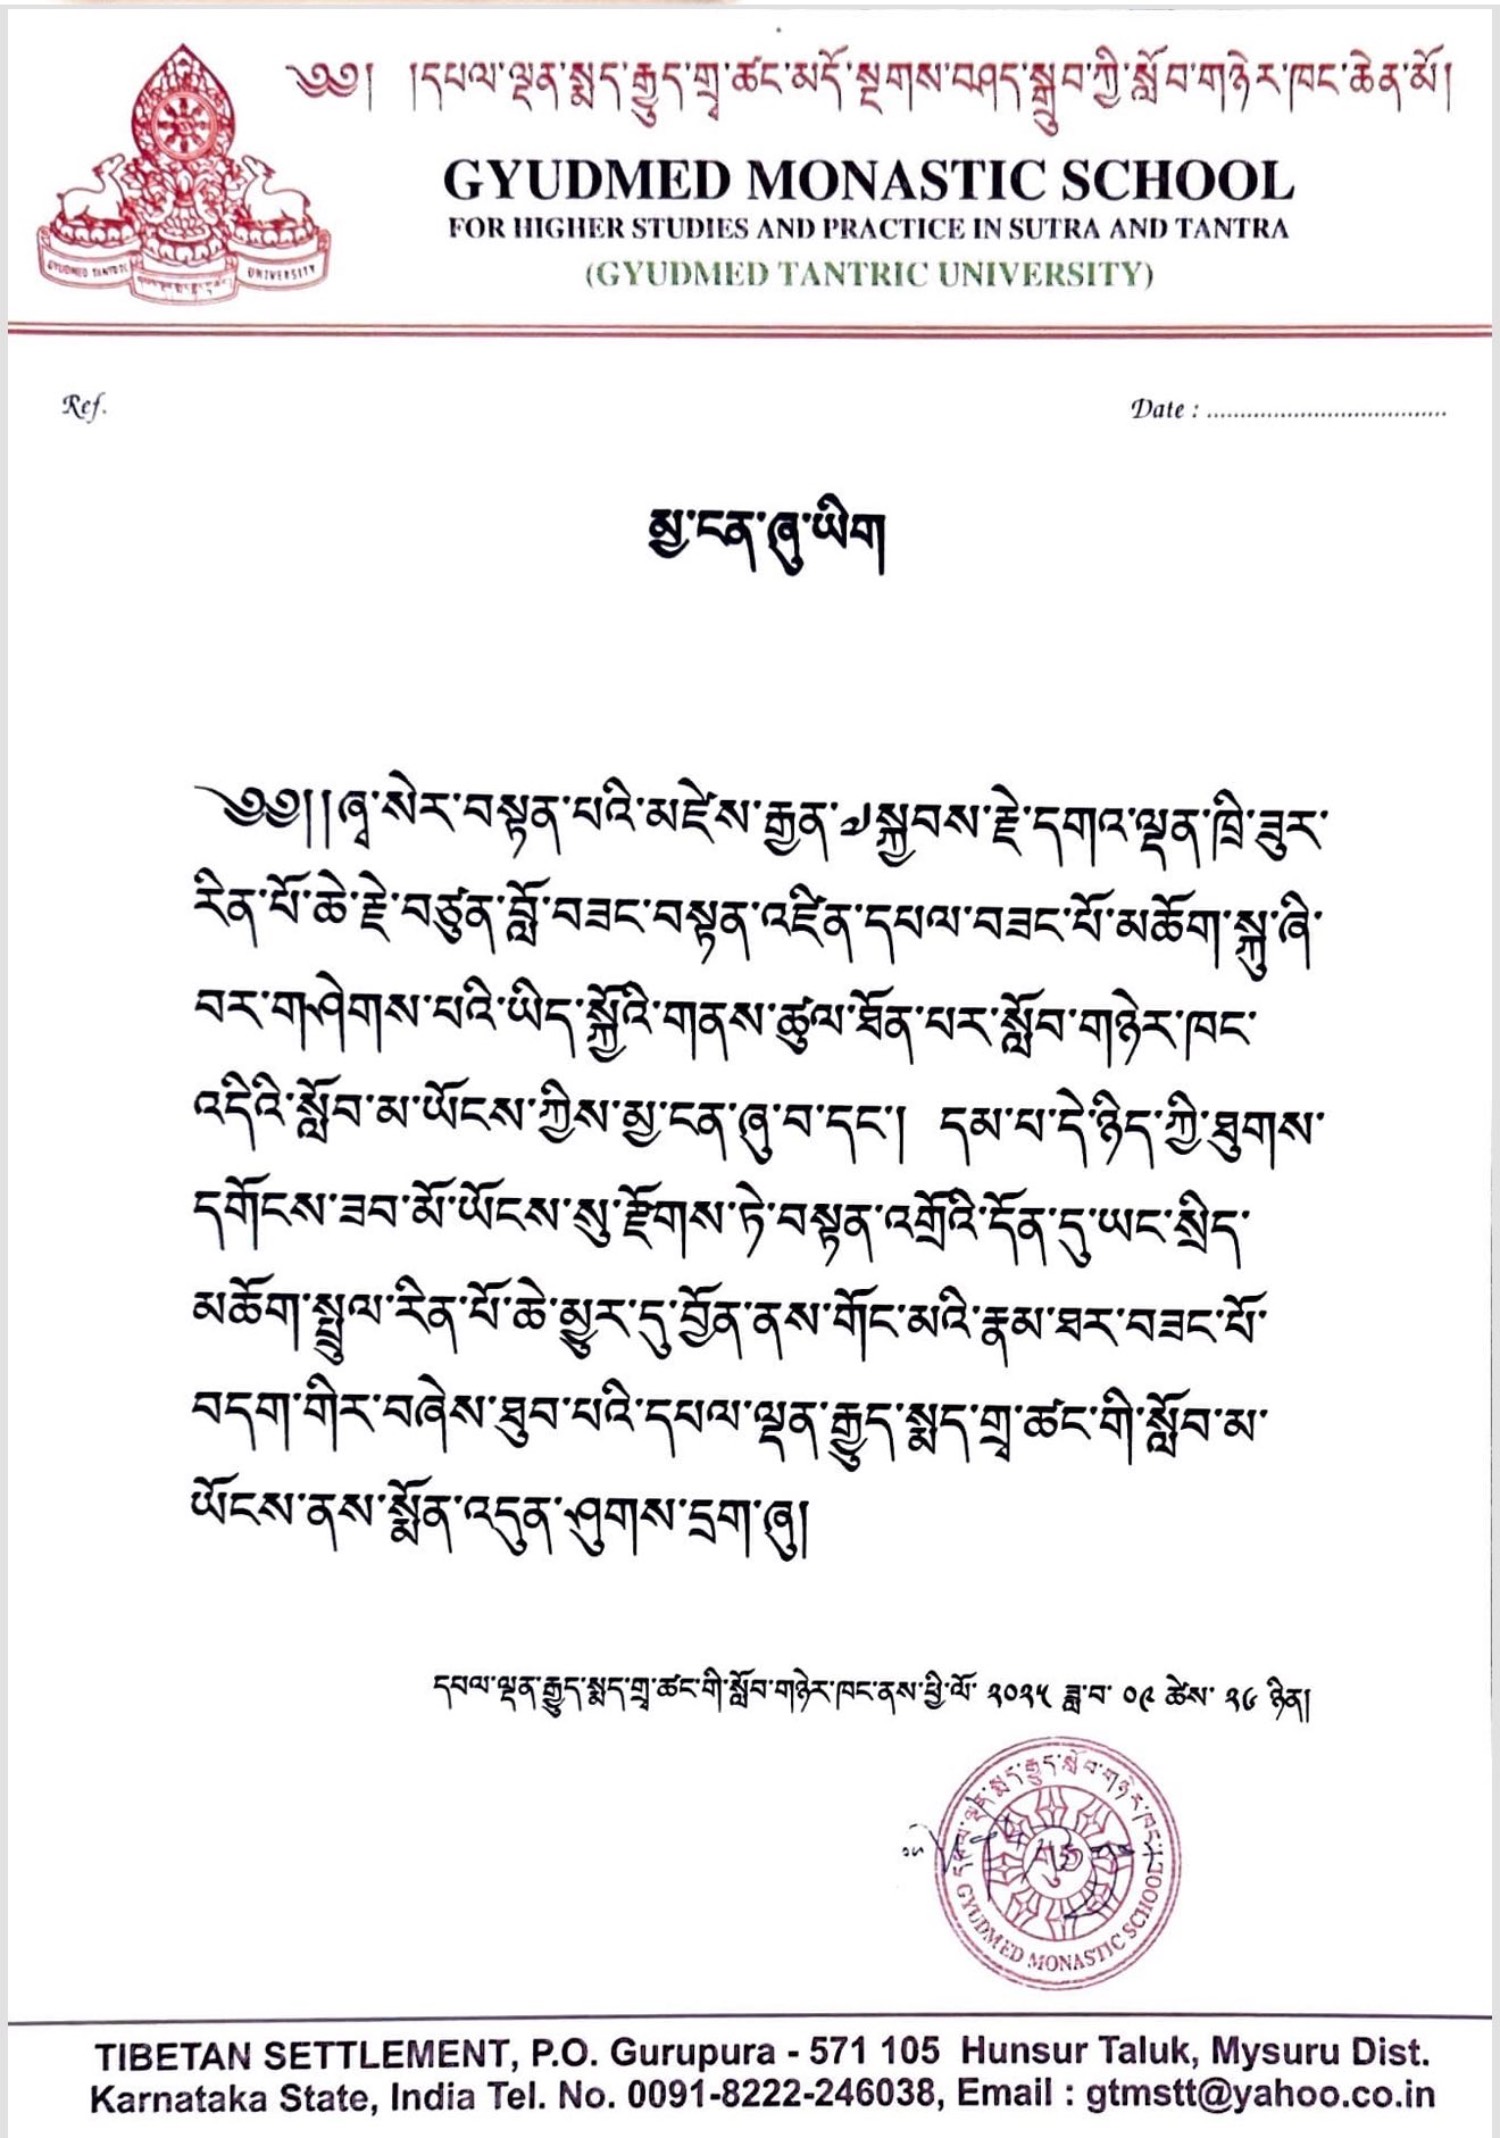 ༄༅། །དཔལ་ལྡན་སྨད་རྒྱུད་གྲྭ་ཚང་མདོ་སྔགས་བཤད་སྒྲུབ་ཀྱི་སློབ་གཉེར་ཁང་ཆེན་མོ།
GYUDMED MONASTIC SCHOOL
FOR HIGHER STUDIES AND PRACTICE IN SUTRA AND TANTRA
(GYUDMED TANTRIC UNIVERSITY)
GYUDMED TANTRIC UNIVERSITY
Ref.
Date : ....................................
མྱ་ངན་ཞུ་ཡིག
༄༅།།ཞྭ་སེར་བསྟན་པའི་མཛེས་རྒྱན་༧སྐྱབས་རྗེ་དགའ་ལྡན་ཁྲི་ཟུར་
རིན་པོ་ཆེ་རྗེ་བཙུན་བློ་བཟང་བསྟན་འཛིན་དཔལ་བཟང་པོ་མཆོག་སྐུ་ཞི་
བར་གཤེགས་པའི་ཡིད་སྐྱོའི་གནས་ཚུལ་ཐོན་པར་སློབ་གཉེར་ཁང་
འདིའི་སློབ་མ་ཡོངས་ཀྱིས་མྱ་ངན་ཞུ་བ་དང་། དམ་པ་དེ་ཉིད་ཀྱི་ཐུགས་
དགོངས་ཟབ་མོ་ཡོངས་སུ་རྫོགས་ཏེ་བསྟན་འགྲོའི་དོན་དུ་ཡང་སྲིད་
མཆོག་སྤྲུལ་རིན་པོ་ཆེ་མྱུར་དུ་བྱོན་ནས་གོང་མའི་རྣམ་ཐར་བཟང་པོ་
བདག་གིར་བཞེས་ཐུབ་པའི་དཔལ་ལྡན་རྒྱུད་སྨད་གྲྭ་ཚང་གི་སློབ་མ་
ཡོངས་ནས་སྨོན་འདུན་ཤུགས་དྲག་ཞུ།
དཔལ་ལྡན་རྒྱུད་སྨད་གྲྭ་ཚང་གི་སློབ་གཉེར་ཁང་ནས་ཕྱི་ལོ་ ༢༠༢༥ ཟླ་བ་ ༠༩ ཚེས་ ༢༦ ཉིན།
དཔལ་ལྡན་སྨད་རྒྱུད་སློབ་གཉེར་ཁང་།
GYUDMED MONASTIC SCHOOL
TIBETAN SETTLEMENT, P.O. Gurupura - 571 105 Hunsur Taluk, Mysuru Dist.
Karnataka State, India Tel. No. 0091-8222-246038, Email : gtmstt@yahoo.co.in